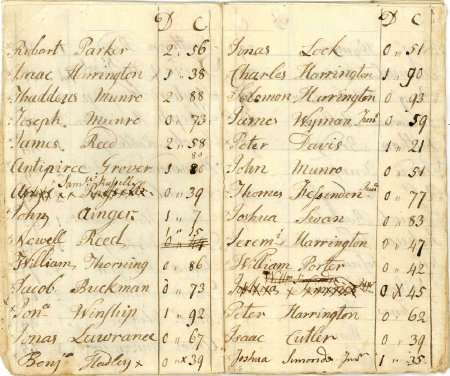 D C
Robert Parker 2 " 56
Isaac Harrington 1 " 38
Thaddeus Munro 2 " 88
Joseph Munro 0 " 73
James Reed 2 " 58
Antipirce Grover 1 " 80
80
Saml
0 " 39
John Ainger 1 " 7
Newell Reed 15
William Thorning 0 " 86
Jacob Buckman 0 " 73
Jona Winship 1 " 92
Jonas Lawrance 0 " 67
Benj Hadley x 0 " x 39
D C
Jonas Lock 0 " 51
Charles Harrington 1 " 90
Solomon Harrington 0 " 93
James Wyman Junr 0 " 59
Peter Davis 1 " 21
John Munro 0 " 51
Thomas Fessenden Junr 0 " 77
Joshua Swan 0 " 83
Jeremh Harrington 0 " 47
William Porter 0 " 42
0 X 45
Peter Harrington 0 " 62
Isaac Cutler 0 " 39
Joshua Simonds Junr 1 " 35